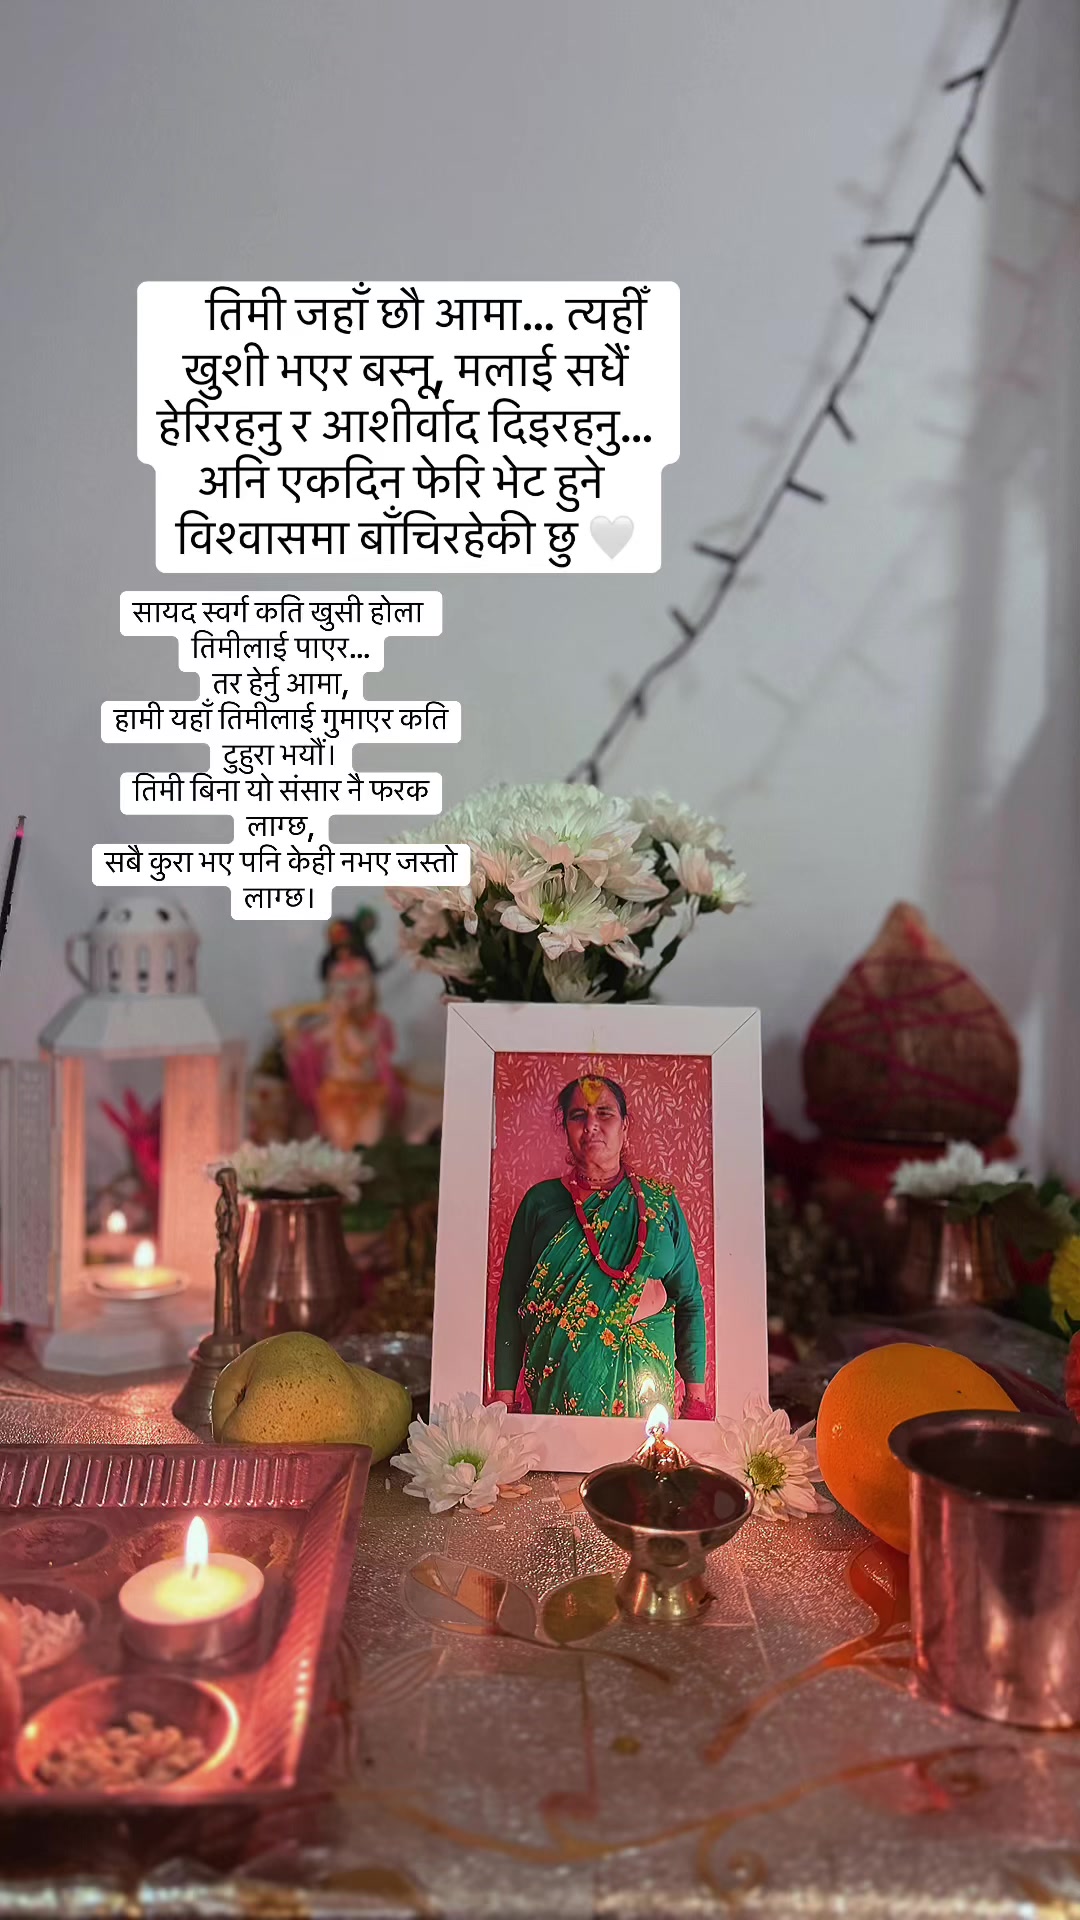 तिमी जहाँ छौ आमा... त्यहीँ
खुशी भएर बस्नू, मलाई सधैं
हेरिरहनु र आशीर्वाद दिइरहनु...
अनि एकदिन फेरि भेट हुने
विश्वासमा बाँचिरहेकी छु 🤍
सायद स्वर्ग कति खुसी होला
तिमीलाई पाएर...
तर हेर्नु आमा,
हामी यहाँ तिमीलाई गुमाएर कति
टुहुरा भयौं।
तिमी बिना यो संसार नै फरक
लाग्छ,
सबै कुरा भए पनि केही नभए जस्तो
लाग्छ।